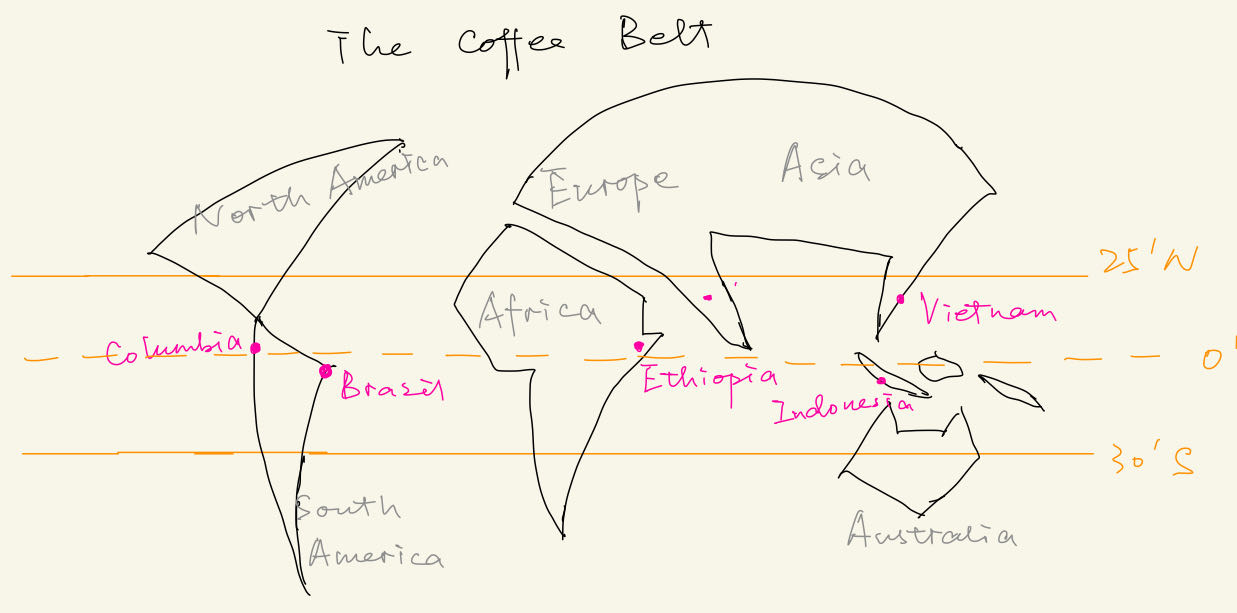 The Coffee Belt
North America
Europe
Asia
25'N
Africa
Vietnam
Columbia
0'
Ethiopia
Brasil
Indonesia
30'S
South
America
Australia